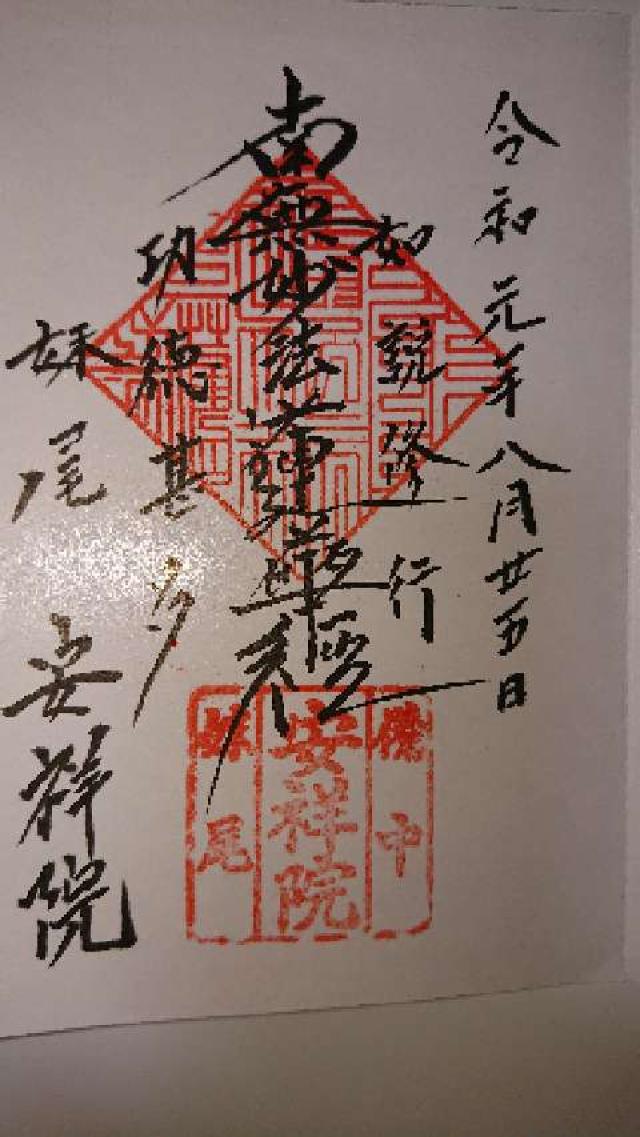 令和元年八月廿五日
如説修行
南無妙法蓮華經
功徳甚多
妹尾 安祥院
備中
安祥院
妹尾